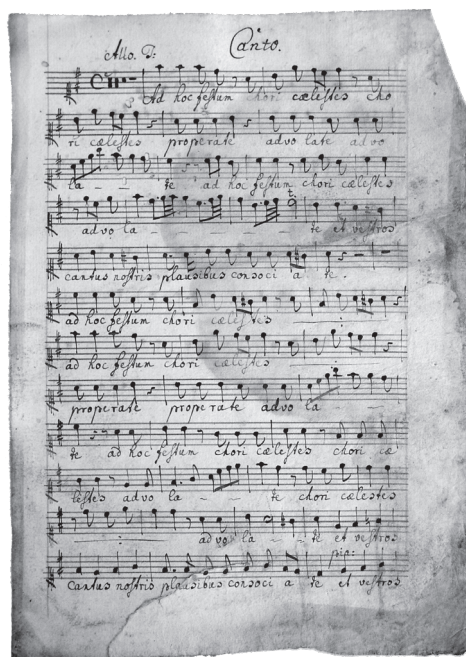 Allo. D:
Canto.
Ad hoc festum chori cælestes cho
ri cælestes properate advo late advo
la - - te ad hoc festum chori cælestes
advo la - - te et vestros
cantus nostris plausibus consoci a te.
ad hoc festum chori cælestes
ad hoc festum chori cælestes
properate properate advo la
te ad hoc festum chori cælestes chori cæ
lestes advo la - - te chori cælestes
advo la - - te et vestros
pia:
Cantus nostris plausibus consoci a te et vestros